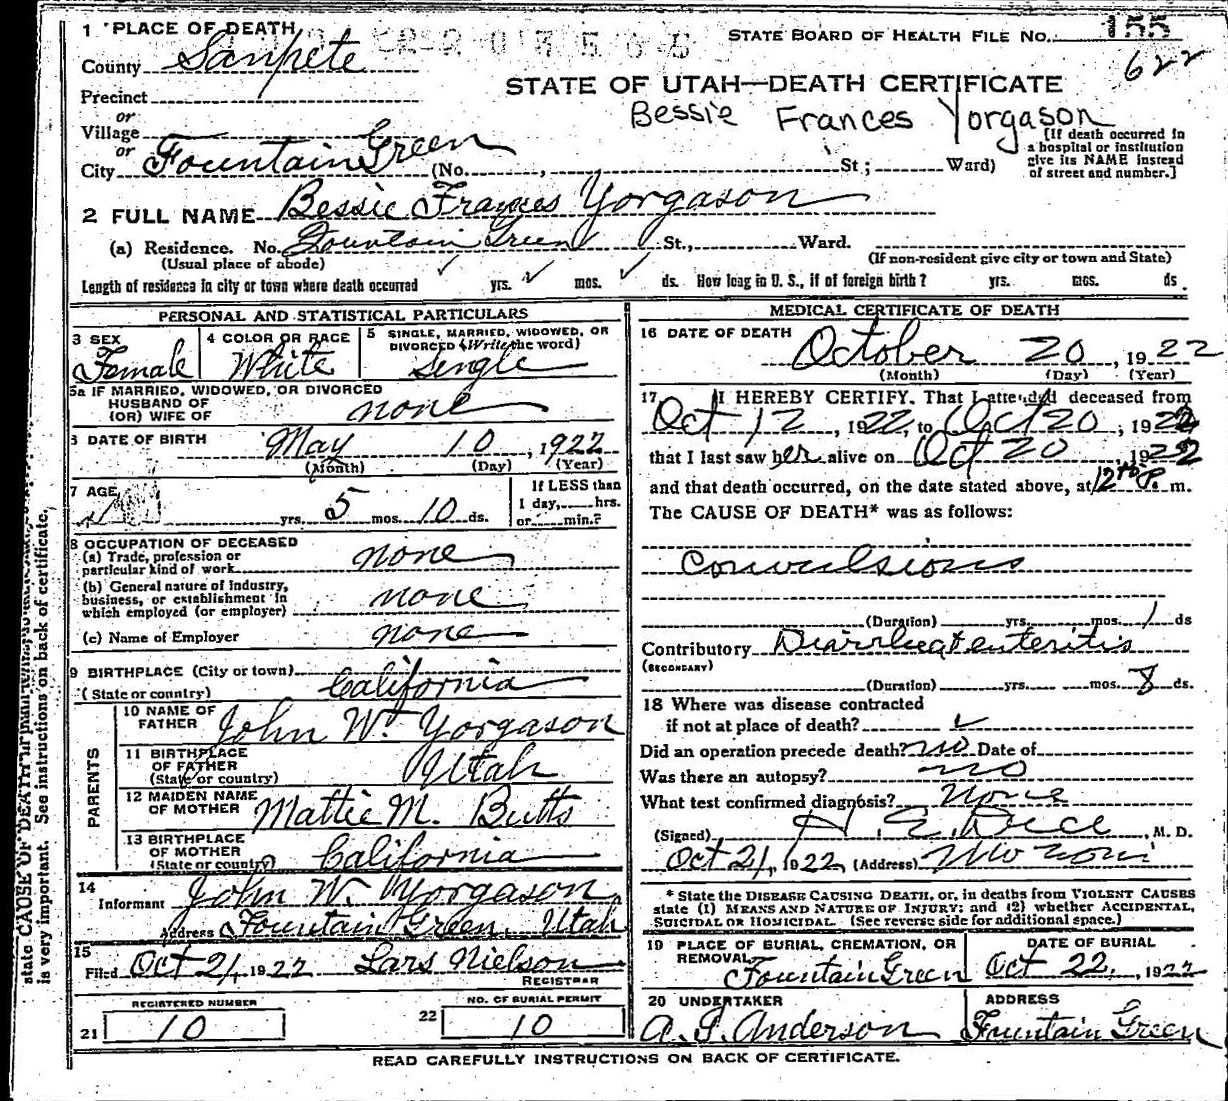 1 PLACE OF DEATH
STATE BOARD OF HEALTH FILE No. 155
622
County Sanpete
STATE OF UTAH—DEATH CERTIFICATE
Precinct
Bessie Frances Yorgason
or
Village
or
City Fountain Green (No. , St ; Ward)
[If death occurred in a hospital or institution give its NAME instead of street and number.]
2 FULL NAME Bessie Frances Yorgason
(a) Residence. No. Fountain Green St., Ward.
(Usual place of abode) (If non-resident give city or town and State)
Length of residence in city or town where death occurred yrs. mos. ds. How long in U. S., if of foreign birth? yrs. mos. ds.
PERSONAL AND STATISTICAL PARTICULARS
3 SEX Female
4 COLOR OR RACE White
5 SINGLE, MARRIED, WIDOWED, OR DIVORCED (Write the word) Single
5a IF MARRIED, WIDOWED, OR DIVORCED
HUSBAND OF
(OR) WIFE OF none
6 DATE OF BIRTH May 10, 1922
(Month) (Day) (Year)
7 AGE yrs. 5 mos. 10 ds.
If LESS than 1 day, hrs. or min.?
8 OCCUPATION OF DECEASED
(a) Trade, profession or particular kind of work none
(b) General nature of industry, business, or establishment in which employed (or employer) none
(c) Name of Employer none
9 BIRTHPLACE (City or town)
(State or country) California
PARENTS
10 NAME OF FATHER John Wt. Yorgason
11 BIRTHPLACE OF FATHER (State or country) Utah
12 MAIDEN NAME OF MOTHER Mattie M. Butts
13 BIRTHPLACE OF MOTHER (State or country) California
14 Informant John W. Yorgason
Address Fountain Green, Utah
15 Filed Oct 21, 1922 Lars Nielson
REGISTRAR
REGISTERED NUMBER
21 10
NO. OF BURIAL PERMIT
22 10
MEDICAL CERTIFICATE OF DEATH
16 DATE OF DEATH October 20, 1922
(Month) (Day) (Year)
17 I HEREBY CERTIFY, That I attended deceased from
Oct 12, 1922, to Oct 20, 1922
that I last saw her alive on Oct 20, 1922
and that death occurred, on the date stated above, at 12 P. m.
The CAUSE OF DEATH* was as follows:
Convulsions
(Duration) yrs. mos. 1 ds
Contributory Diarrhea & enteritis
(SECONDARY)
(Duration) yrs. mos. 8 ds.
18 Where was disease contracted
if not at place of death?
Did an operation precede death? no Date of
Was there an autopsy? no
What test confirmed diagnosis? None
(Signed) H. E. Dice, M. D.
Oct 21, 1922 (Address) Moroni
* State the DISEASE CAUSING DEATH, or, in deaths from VIOLENT CAUSES
state (1) MEANS AND NATURE OF INJURY; and (2) whether ACCIDENTAL,
SUICIDAL OR HOMICIDAL. (See reverse side for additional space.)
19 PLACE OF BURIAL, CREMATION, OR REMOVAL Fountain Green
DATE OF BURIAL Oct 22, 1922
20 UNDERTAKER A. J. Anderson
ADDRESS Fountain Green
READ CAREFULLY INSTRUCTIONS ON BACK OF CERTIFICATE.
state CAUSE OF DEATH
is very important. See instructions on back of certificate.